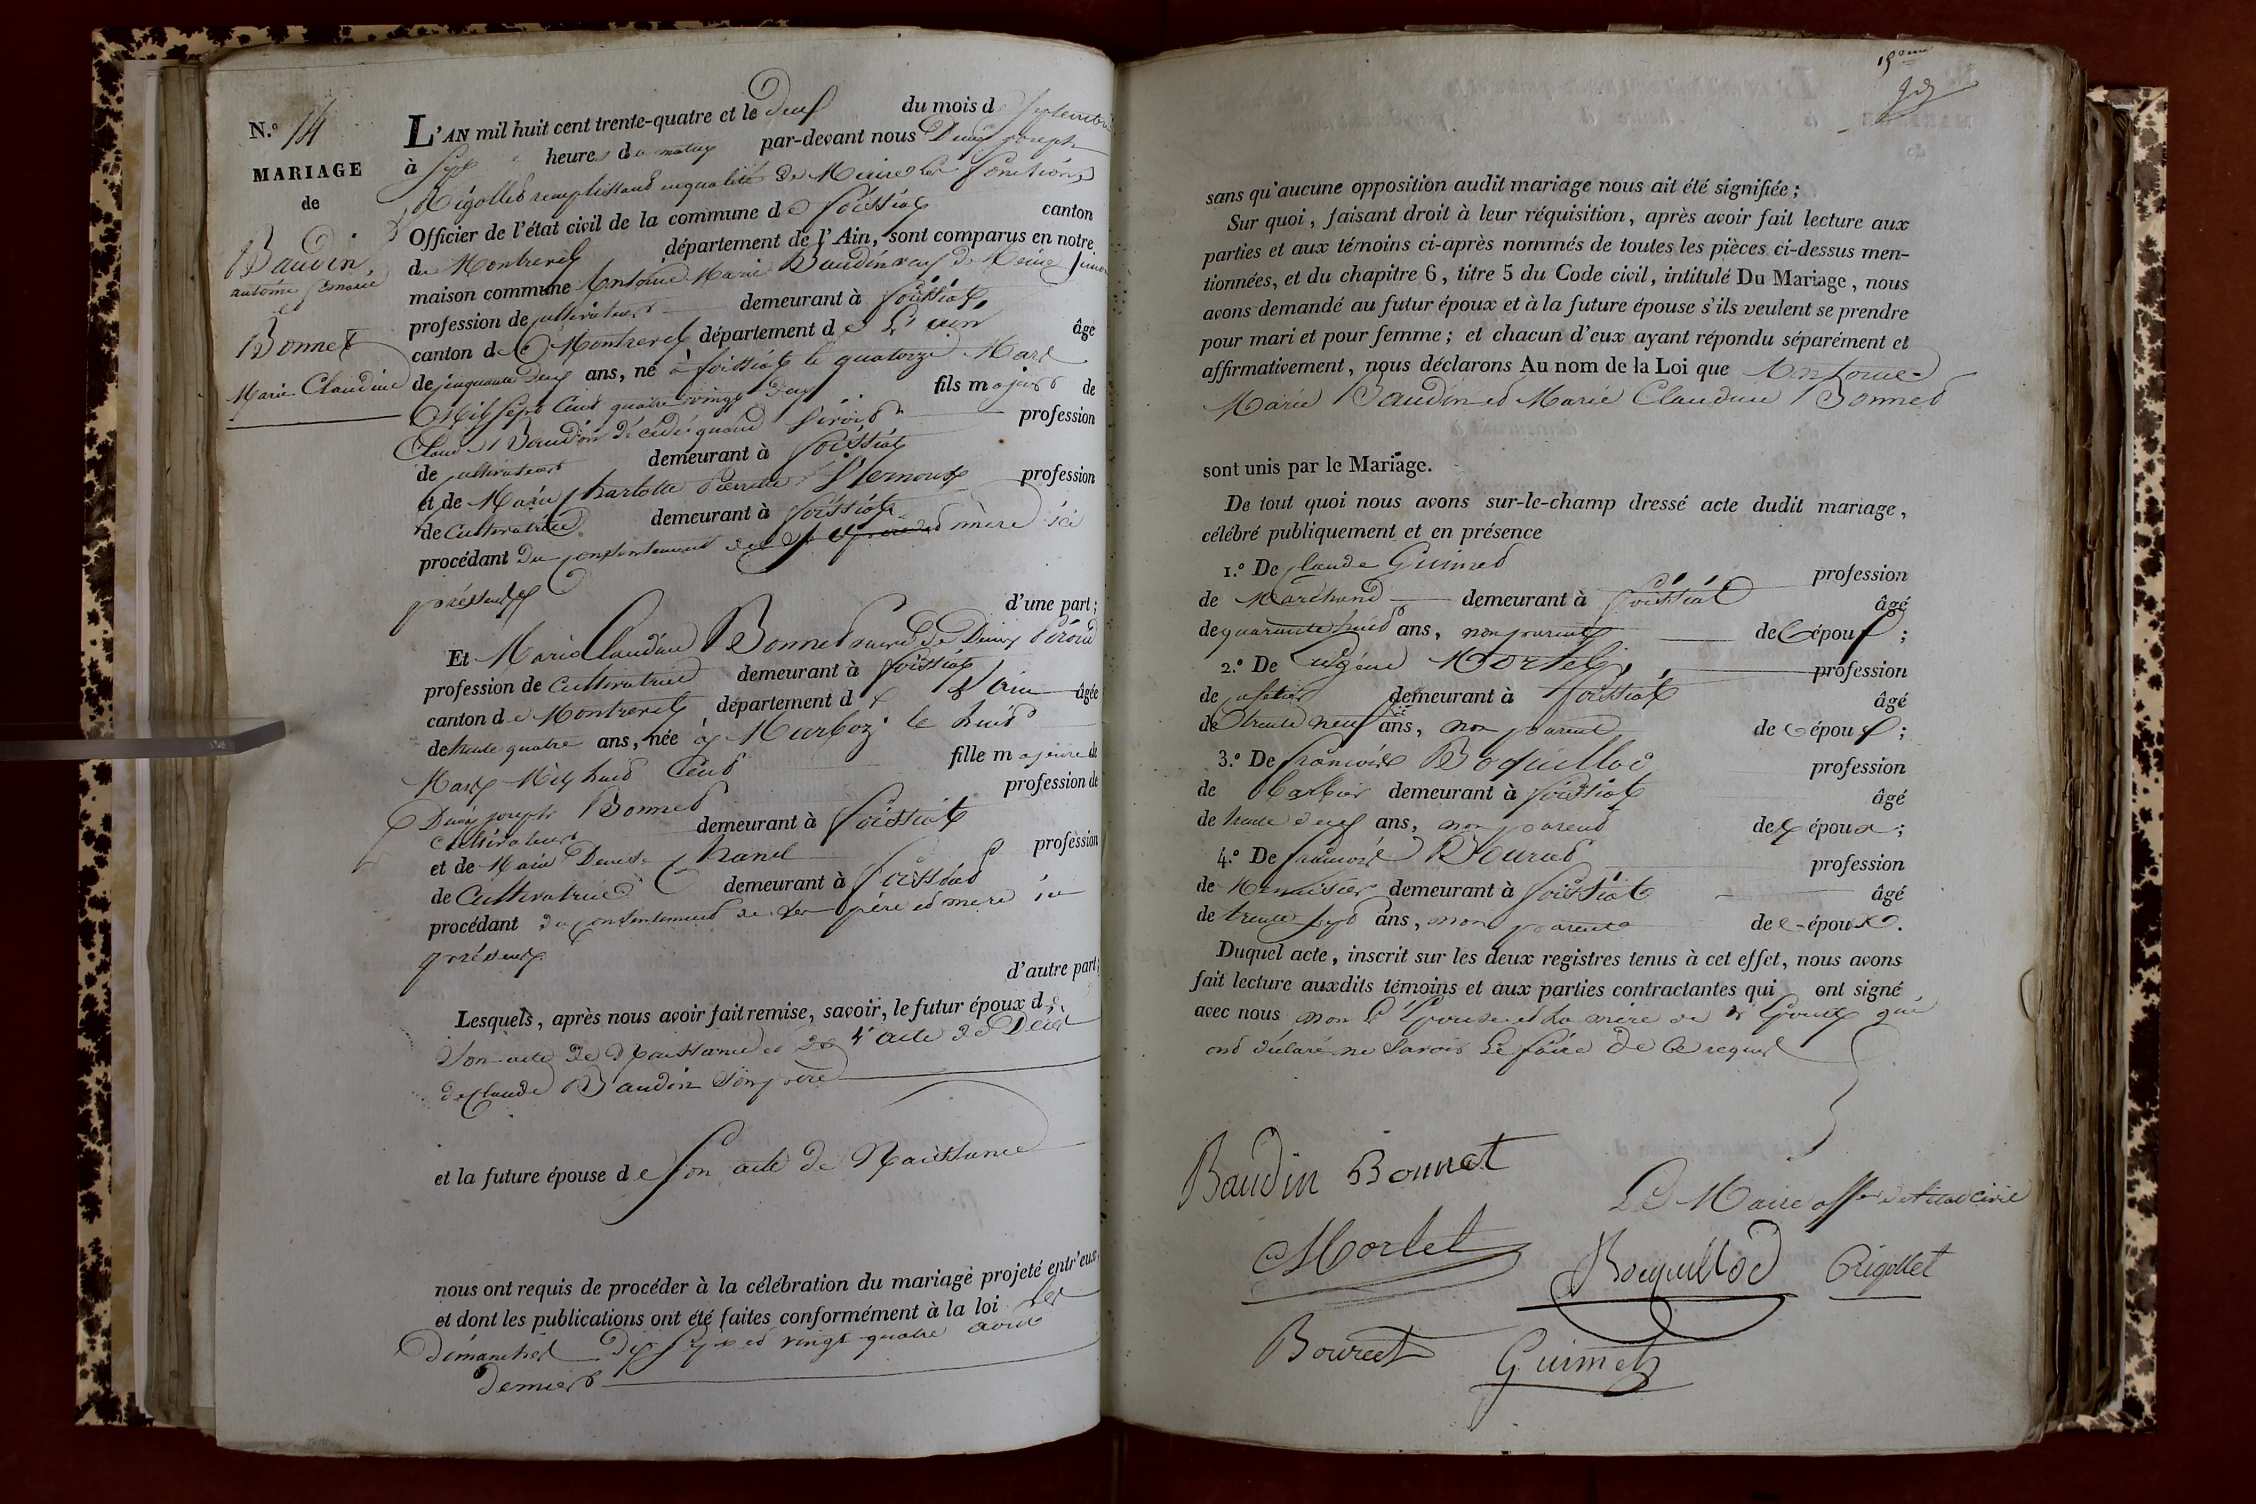 N.º 14
MARIAGE
de
Baudin
antoine marie
et
Bonnet
Marie Claudine
L'AN mil huit cent trente-quatre et le Deux du mois de Septembre
à Sept heures du matin par-devant nous Denis joseph
Rigollet remplissant en qualité de Maire les fonctions
Officier de l'état civil de la commune de foissiat canton
de Montrevel département de l'Ain, sont comparus en notre
maison commune Antoine Marie Baudin veuf de
profession de cultivateur demeurant à foissiat
canton de Montrevel département de L'ain âgé
de cinquante Deux ans, né à foissiat le quatorze Mars
Mil sept Cent quatre vingt deux fils majeur de
Claude Baudin décédé quand vivoit profession
de cultivateur demeurant à foissiat
et de Marie Charlotte Pierrette profession
de Cultivatrice demeurant à foissiat
procédant Du consentement de sa mère ici
présente
d'une part;
Et Marie Claudine Bonnet veuve de Denis
profession de Cultivatrice demeurant à foissiat
canton de Montrevel département de L'Ain âgée
de trente quatre ans, née à Marboz le huit
Mars Mil huit Cent fille majeure de
Denis joseph Bonnet profession de
cultivateur demeurant à foissiat
et de Marie Denise Chanel profession
de Cultivatrice demeurant à foissiat
procédant du consentement de ses père et mère ici
présents
d'autre part;
Lesquels, après nous avoir fait remise, savoir, le futur époux de
Son acte de Naissance et de l'acte de Décès
de Claude Baudin Son père
et la future épouse de Son acte de Naissance
nous ont requis de procéder à la célébration du mariage projeté entr'eux,
et dont les publications ont été faites conformément à la loi les
dimanches Dix Sept et vingt quatre aout
Dernier
19eme
sans qu'aucune opposition audit mariage nous ait été signifiée;
Sur quoi, faisant droit à leur réquisition, après avoir fait lecture aux
parties et aux témoins ci-après nommés de toutes les pièces ci-dessus men-
tionnées, et du chapitre 6, titre 5 du Code civil, intitulé Du Mariage, nous
avons demandé au futur époux et à la future épouse s'ils veulent se prendre
pour mari et pour femme; et chacun d'eux ayant répondu séparément et
affirmativement, nous déclarons Au nom de la Loi que Antoine
Marie Baudin et Marie Claudine Bonnet
sont unis par le Mariage.
De tout quoi nous avons sur-le-champ dressé acte dudit mariage,
célébré publiquement et en présence
1.º De Claude Guimet profession
de Marchand demeurant à foissiat âgé
de quarante huit ans, non parent de L'époux;
2.º De Eugène Mortel profession
de demeurant à foissiat âgé
de trente neuf ans, non parent de L'époux;
3.º De françois Boquillod profession
de Barbier demeurant à foissiat âgé
de trente deux ans, non parent de L'époux;
4.º De françois Bouret profession
de Menuisier demeurant à foissiat âgé
de trente sept ans, non parent de L'époux.
Duquel acte, inscrit sur les deux registres tenus à cet effet, nous avons
fait lecture auxdits témoins et aux parties contractantes qui ont signé
avec nous non L'Epouse et La mère de L'Epoux qui
ont déclaré ne Savoir Le faire de Ce requis
Baudin Bonnet
Le Maire offer de l'état civil
Mortel Bocquillod Rigollet
Bouret Guimet